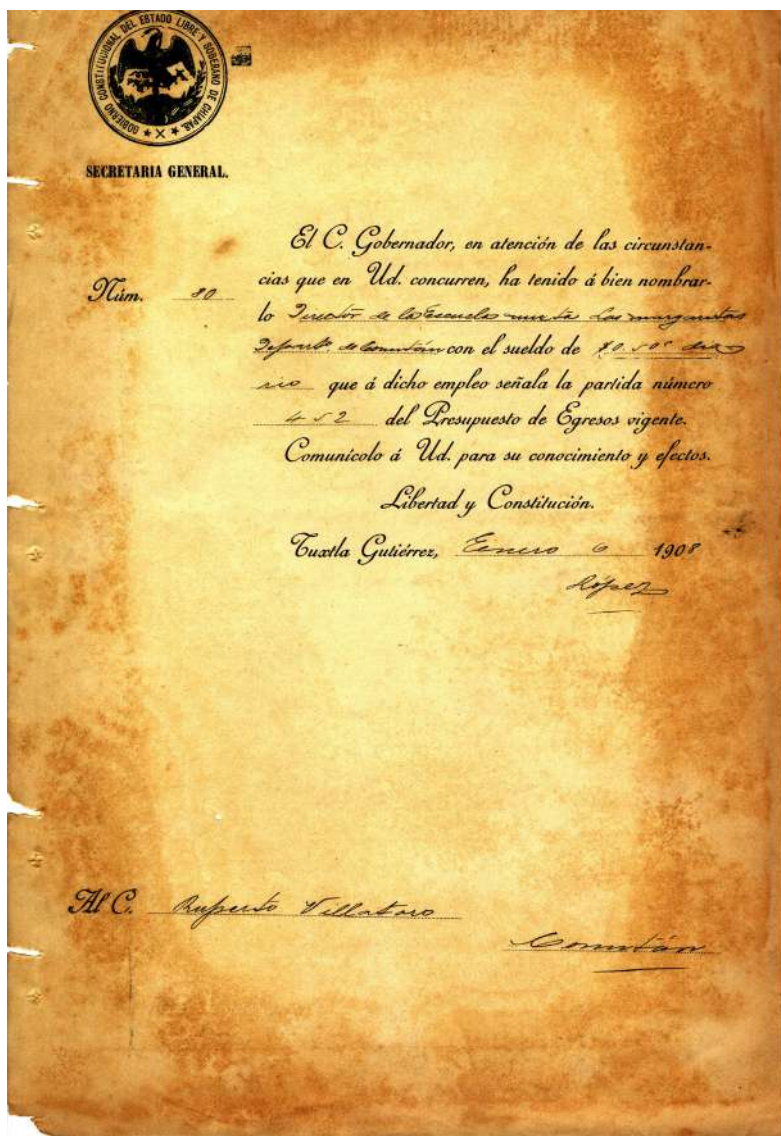 GOBIERNO CONSTITUCIONAL DEL ESTADO LIBRE Y SOBERANO DE CHIAPAS
SECRETARIA GENERAL.
El C. Gobernador, en atención de las circunstan-
Núm. 80 cias que en Ud. concurren, ha tenido á bien nombrar-
lo Director de la Escuela mixta Las margaritas
Departo. de Comitán con el sueldo de $0.50c dia
rio que á dicho empleo señala la partida número
452 del Presupuesto de Egresos vigente.
Comunícolo á Ud. para su conocimiento y efectos.
Libertad y Constitución.
Tuxtla Gutiérrez, Enero 6 1908
López
Al C. Ruperto Villatoro
Comitán